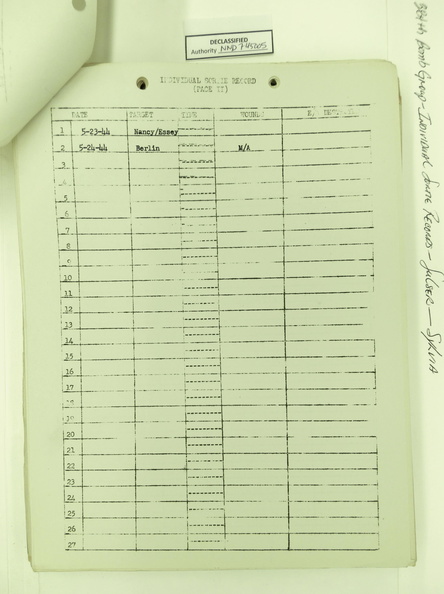 DECLASSIFIED
Authority NND 745005
INDIVIDUAL SORTIE RECORD
(PAGE II)
DATE TARGET TIME WOUNDS
1 5-23-44 Nancy/Essey
2 5-24-44 Berlin M/A
3
4
5
6
7
8
9
10
11
12
13
14
15
16
17
18
19
20
21
22
23
24
25
26
27
384th Bomb Group - Individual Sortie Records - Sulser - Sylvia